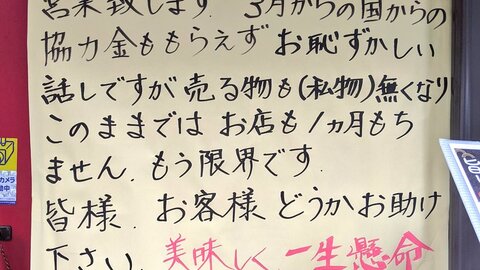 営業致します。3月からの国からの
協力金ももらえず お恥ずかしい
話しですが売る物も(私物)無くなり
このままでは お店も1ヵ月もち
ません。もう限界です。
皆様、お客様 どうかお助け
下さい。美味しく、一生懸命
カメラ
動中